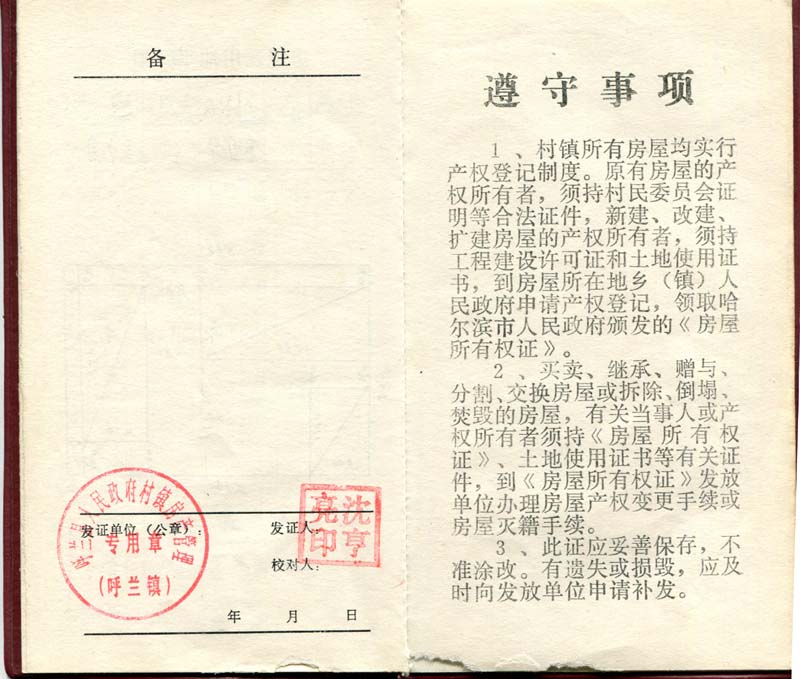 备 注
呼兰县人民政府村镇房产管理
专用章
(呼兰镇)
发证单位（公章）:
发证人:
沈亨亮印
校对人:
年 月 日
遵守事项
1、村镇所有房屋均实行
产权登记制度。原有房屋的产
权所有者，须持村民委员会证
明等合法证件，新建、改建、
扩建房屋的产权所有者，须持
工程建设许可证和土地使用证
书，到房屋所在地乡（镇）人
民政府申请产权登记，领取哈
尔滨市人民政府颁发的《房屋
所有权证》。
2、买卖、继承、赠与、
分割、交换房屋或拆除、倒塌、
焚毁的房屋，有关当事人或产
权所有者须持《房屋所有权
证》、土地使用证书等有关证
件，到《房屋所有权证》发放
单位办理房屋产权变更手续或
房屋灭籍手续。
3、此证应妥善保存，不
准涂改。有遗失或损毁，应及
时向发放单位申请补发。